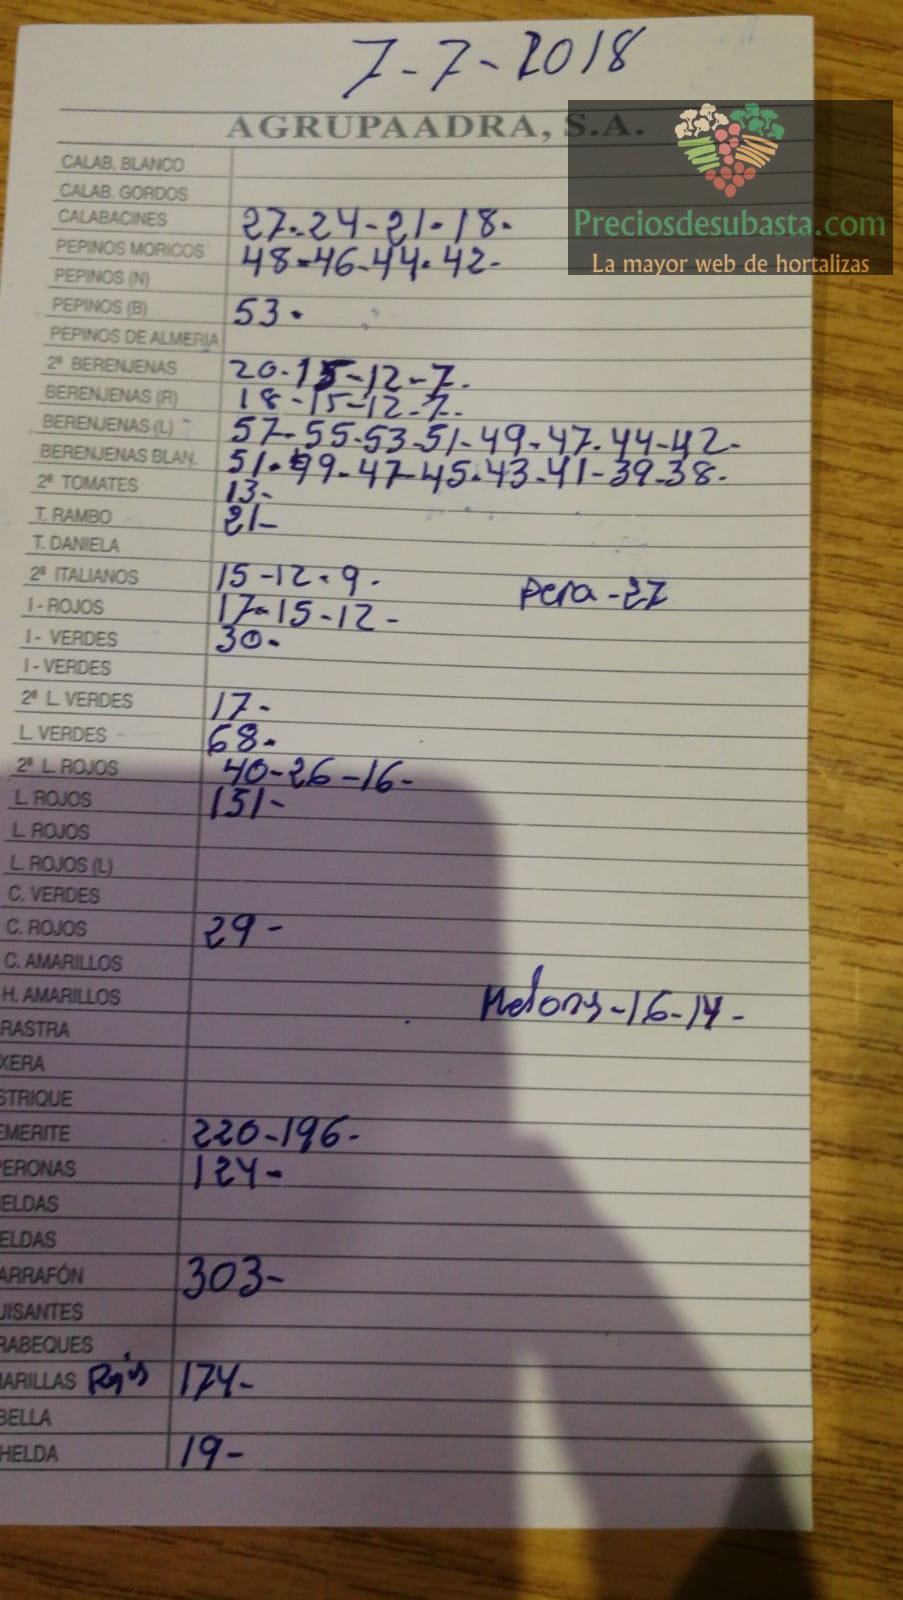 7-7-2018
AGRUPAADRA, S.A.
Preciosdesubasta.com
La mayor web de hortalizas
CALAB. BLANCO
CALAB. GORDOS
CALABACINES 27-24-21-18-
PEPINOS MORICOS 48-46-44-42-
PEPINOS (N)
PEPINOS (B) 53-
PEPINOS DE ALMERIA
2ª BERENJENAS 20-15-12-7-
BERENJENAS (R) 18-15-12-7-
BERENJENAS (L) 57-55-53-51-49-47-44-42-
BERENJENAS BLAN. 51-49-47-45-43-41-39-38-
2ª TOMATES 13-
T. RAMBO 21-
T. DANIELA
2ª ITALIANOS 15-12-9- pera-27
I - ROJOS 17-15-12-
I - VERDES 30-
I - VERDES
2ª L. VERDES 17-
L. VERDES 68-
2ª L. ROJOS 40-26-16-
L. ROJOS 151-
L. ROJOS
L. ROJOS (L)
C. VERDES
C. ROJOS 29-
C. AMARILLOS
H. AMARILLOS Melons-16-14-
RASTRA
XERA
STRIQUE
EMERITE 220-196-
PERONAS 124-
ELDAS
ELDAS
ARRAFÓN 303-
UISANTES
RABEQUES
MARILLAS Rojas 174-
BELLA
HELDA 19-